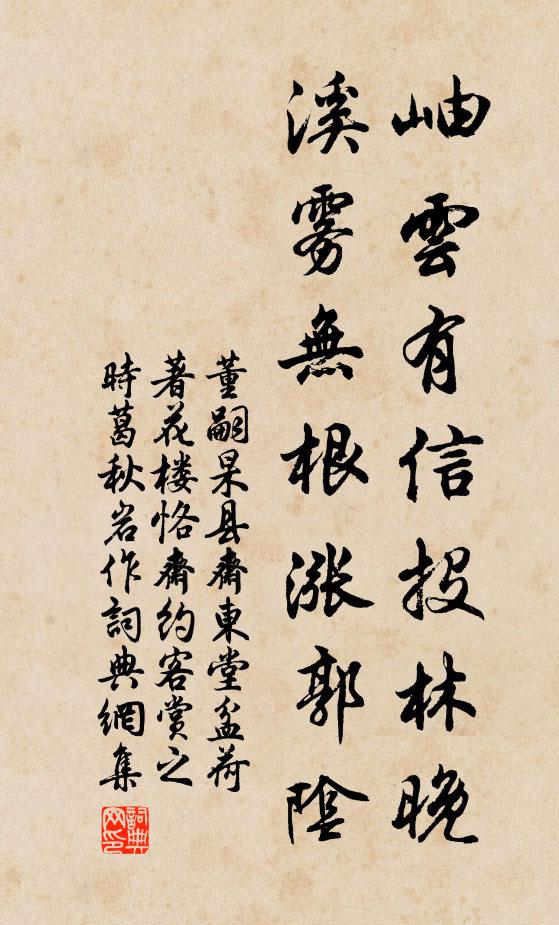 岫雲有信投林晚
溪雾無根漲郭陰
董嗣杲县齋東堂盆荷
著花楼恪齋約客賞之
時葛秋岩作詞典網集
詞典网印